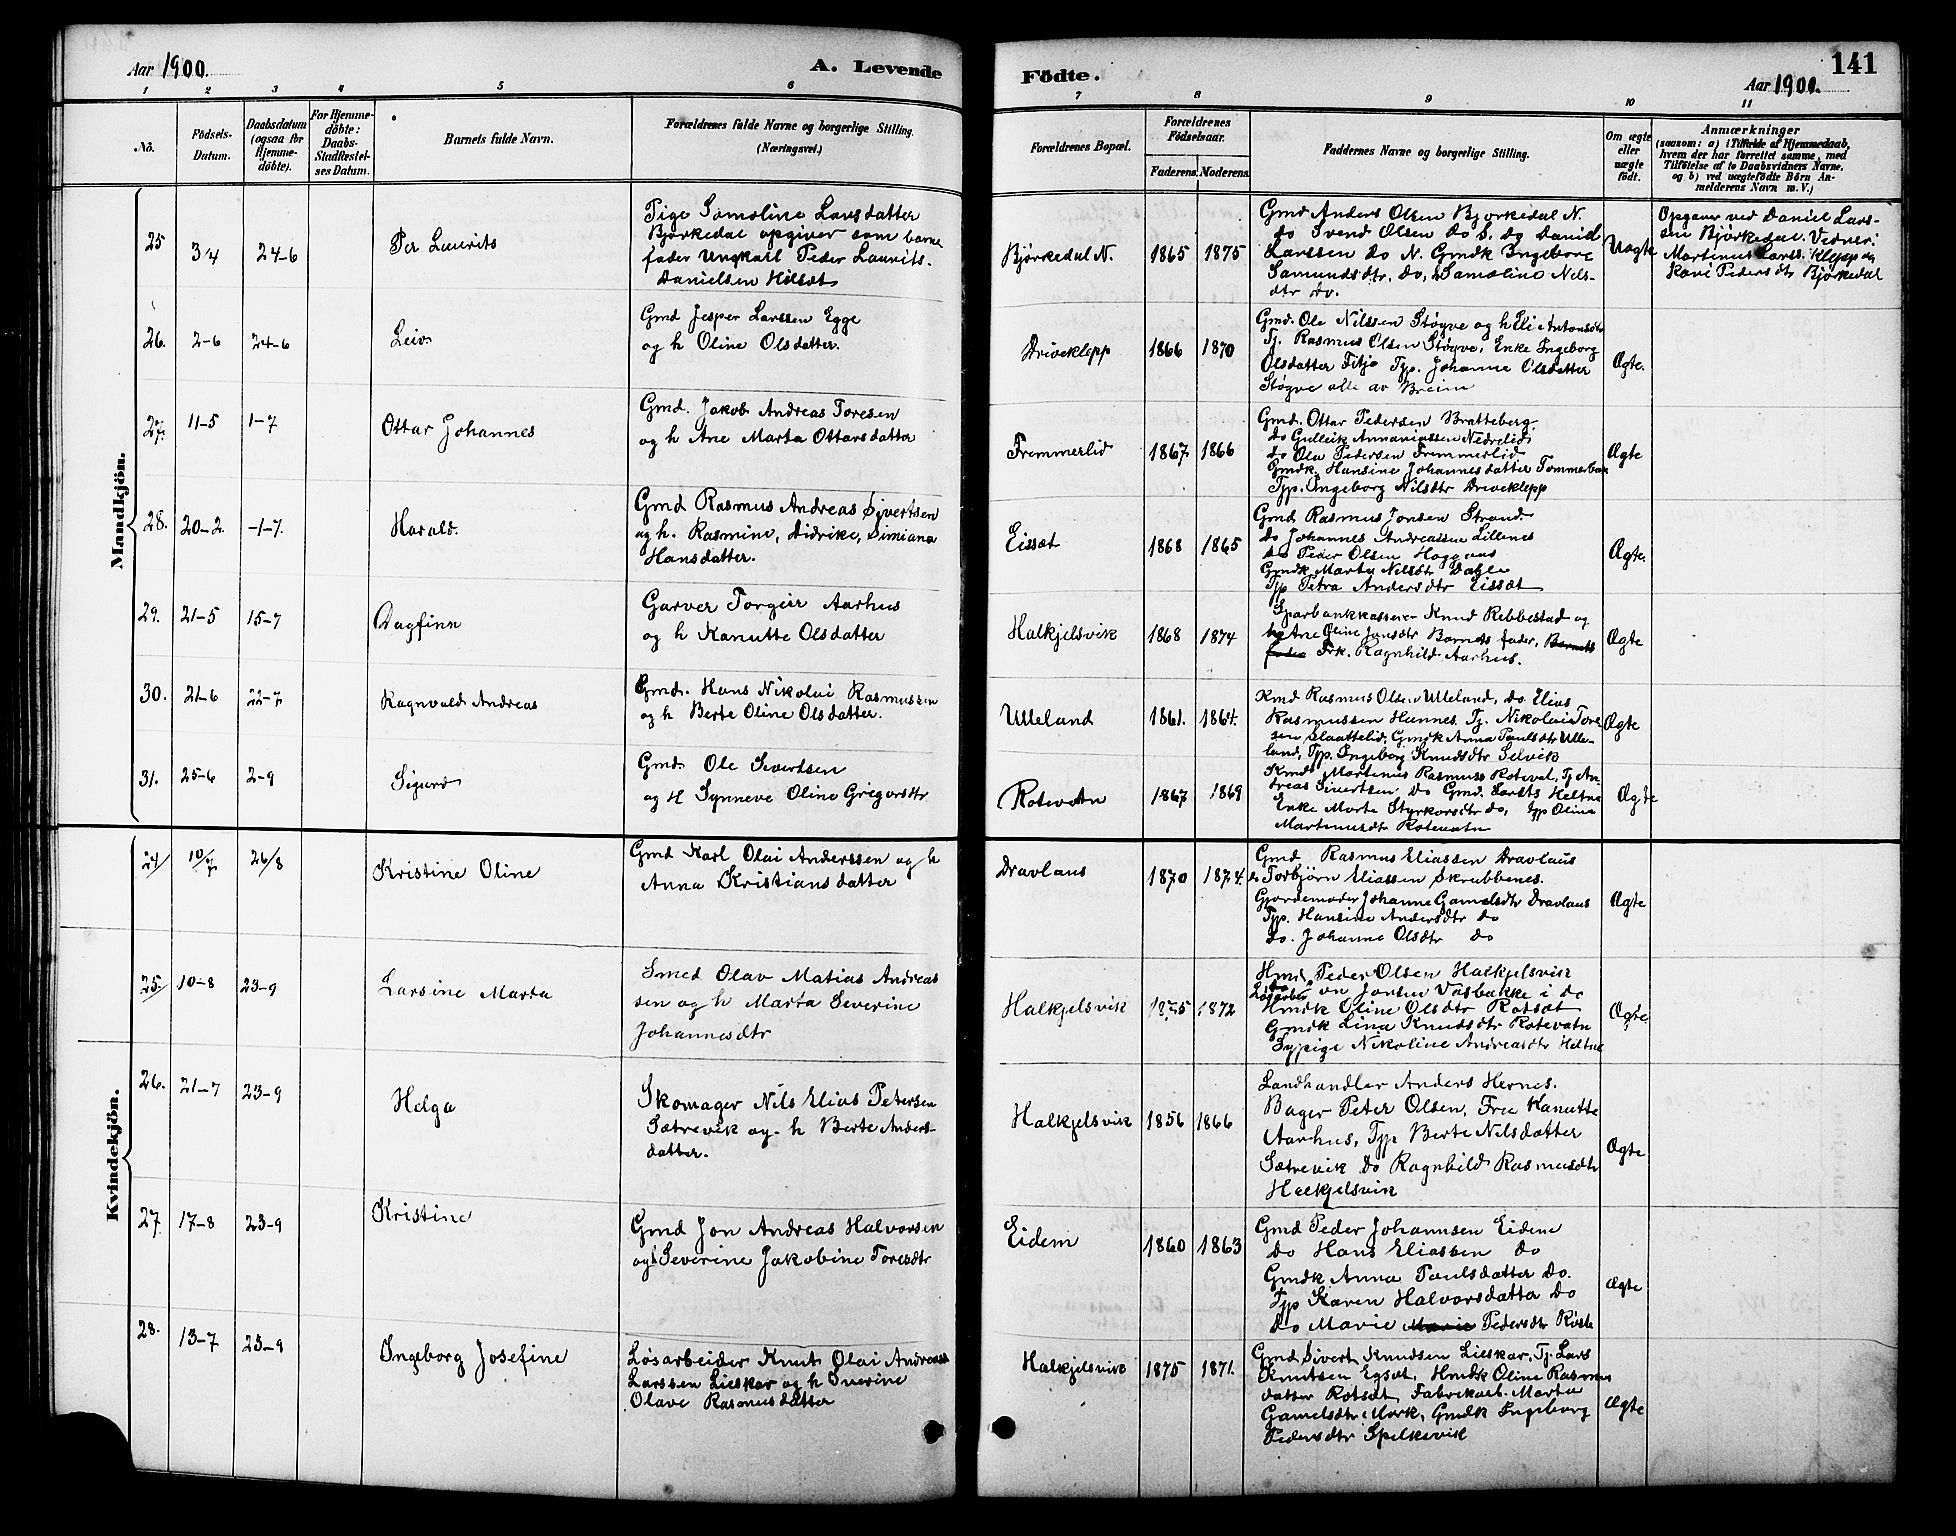 Aar 1900.
A. Levende
Födte.
141
Aar 1900.
1 2 3 4 5 6 7 8 9 10 11
Nö.
Födsels-
Datum.
Daabsdatum
(ogsaa for
Hjemme-
döbte).
For Hjemme-
döbte:
Daabs-
Stadfæstel-
ses Datum.
Barnets fulde Navn.
Forældrenes fulde Navne og borgerlige Stilling.
(Næringsvei.)
Forældrenes Bopæl.
Forældrenes
Födselsaar.
Faderens. Moderens.
Faddernes Navne og borgerlige Stilling.
Om ægte
eller
uægte
födt.
Anmærkninger
(saasom: a) i Tilfælde af Hjemmedaab,
hvem der har forrettet samme, med
Tilföielse af to Daabsvidners Navne,
og b) ved uægtefödte Börn An-
melderens Navn m. V.)
Mandkjön.
25 3/4 24-6 Per Laurits
Pige Samoline Larsdatter
Bjørkedal opgiver som barne
fader Ungkarl Peder Laurits
Danielsen Hilsæt
Bjørkedal N. 1865 1875
Gmd Anders Olsen Bjørkedal N.
do Svend Olsen do S. do Daniel
Larssen do N. Gmdk Ingeborg
Samundsdtr. do, Samoline Nils-
dtr do.
Uægte
Opgaver ved Daniel Lars-
sen Bjørkedal. Vidner:
Martinus Larss. Klepp og
Kari Pedersdtr Bjørkedal
26. 2-6 24-6 Leiv
Gmd Jesper Larssen Egge
og h Oline Olsdatter.
Driveklepp 1866 1870
Gmd. Ole Nilssen Støgve og h Eli Antonsdtr
Tj. Rasmus Olsen Støgve, Enke Ingeborg
Olsdatter Fitje Tjp. Johanne Olsdatter
Støgve alle av Breim
Ægte.
27. 11-5 1-7 Ottar Johannes
Gmd. Jakob Andreas Toresen
og h Ane Marta Ottarsdatter
Fremmerlid 1867. 1866
Gmd. Ottar Pedersen Bratteberg.
do Gulleik Annaniassen Nedrelid
do Ola Pedersen Fremmerlid
Gmdk. Hansine Johannesdatter
Tjp. Ingeborg Nilsdtr Driveklepp
Ægte
28. 20-2. -1-7. Harald.
Gmd Rasmus Andreas Sivertsen
og h. Rasmine, Didrike, Simiana
Hansdatter.
Eisset 1868 1865
Gmd Rasmus Jonsen Strand.
do Johannes Andreassen Lillenes
do Peder Olsen
Gmdk Marta Nilsdtr Dahle
Tjp Petra Andersdtr Eisset
Ægte.
29. 21-5 15-7 Dagfinn
Garver Torgeir Aarhus
og h Kanutte Olsdatter
Halkjelsvik 1868 1874
Sparbankkasserer Knud Rebbestad og
h Ane Oline Jonsdtr Barnets fader, Barnets
fader Frk. Ragnhild Aarhus.
Ægte
30. 21-6 22-7 Ragnvald Andreas
Gmd. Hans Nikolai Rasmussen
og h Berte Oline Olsdatter.
Ulleland 1861. 1864.
Kmd Rasmus Olsen Ulleland, do Elias
Rasmussen Hannes. Tj. Nikolai Tore
sen Slaattelid, Gmdk Anna Paulsdtr Ulle-
land, Tjp. Ingeborg Knudsdtr Selvik
Ægte
31. 25-6 2-9 Sigurd
Gmd. Ole Sivertsen
og H Synneve Oline Gregorsdtr
Rotevatn 1867 1869
Kmd Martinus Rasmuss Rotevat, Tj An-
dreas Sivertsen do Gmd. Heltne
Enke Marte Styrkorsdtr do, Tjp Oline
Martinusdtr Rotevatn
Ægte
Kvindekjön.
24/ 10/7 26/8 Kristine Oline
Gmd Karl Olai Anderssen og h
Anna Kristiansdatter
Dravlaus 1870 1874.
Gmd Rasmus Eliassen Dravlaus
do Torbjørn Eliassen Skrubbenes.
Gjordemoder Johanne Gamelsdtr Dravlaus
Tjp. Hansine Andersdtr do
do. Johanne Olsdtr do
Ægte
25/ 10-8 23-9 Larsine Marta
Smed Olav Matias Andreas
sen og h Marta Severine
Johannesdtr
Halkjelsvik 1875 1872
Hmd Peder Olsen Halkjelsvik
Løsarbei Jonsen Vasbakke i do
Hmdk Oline Olsdtr Rotsæt
Gmdk Lina Knudsdtr Rotevatn
Sypige Nikoline Andreasdtr Heltne
Ægte
26. 21-7 23-9 Helga
Skomager Nils Elias Petersen
Sætrevik og h Berte Anders-
datter.
Halkjelsvik 1856 1866
Landhandler Anders Hernes.
Bager Peter Olsen, Fru Kanutte
Aarhus, Tjp Berte Nilsdatter
Sætrevik do Ragnhild Rasmusdtr
Halkjelsvik
Ægte
27 17-8 23-9 Kristine
Gmd Jon Andreas Halvorsen
og h Severine Jakobine Toresdtr
Eidem 1860 1863
Gmd Peder Johannsen Eidem
do Hans Eliassen do
Gmdk Anna Paulsdatter do.
Tjp Karen Halvorsdatter do
do Marie Marie Pedersdtr
Ægte
28. 13-7 23-9 Ingeborg Josefine
Løsarbeider Knut Olai Andreas
Larssen Lieskar og h Severine
Olave Rasmusdatter
Halkjelsvik 1875 1871.
Gmd Sivert Knudsen Lieskar, Tj. Lars
Knutsen Egset, Hmdk Oline Rasmus
datter Rotset Fabrikarb. Marta
Gamelsdtr Mork, Gmdk Ingeborg
Pedersdtr Spelkevik
Ægte